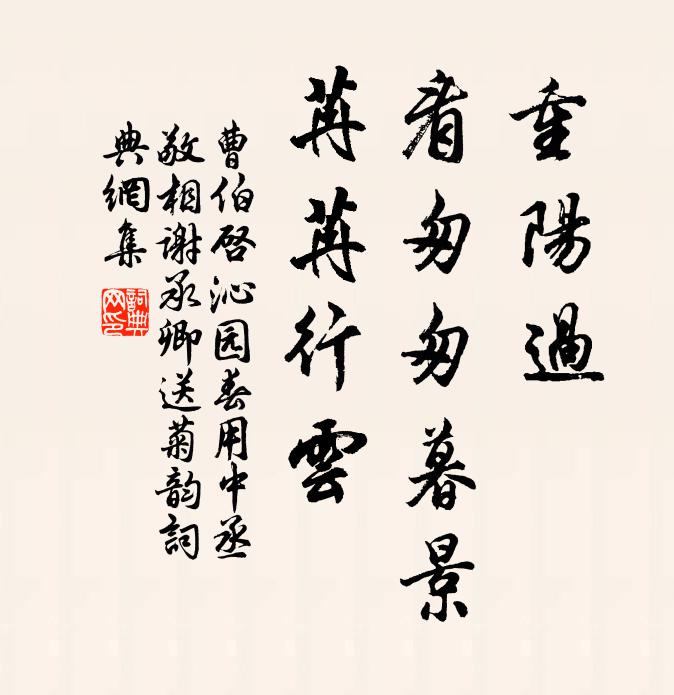 重陽過
看匆匆暮景
苒苒行雲
曹伯啓沁园春用中丞
敬相谢承卿送菊韵詞
典網集
詞典網印